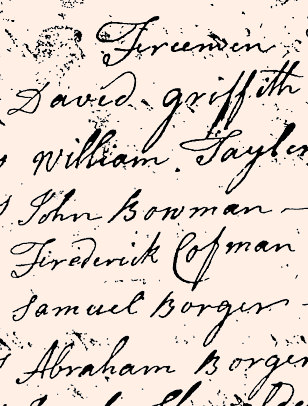 Freemen
David Griffith
William Tayler
John Bowman
Firederick Cofman
Samuel Borger
Abraham Borger